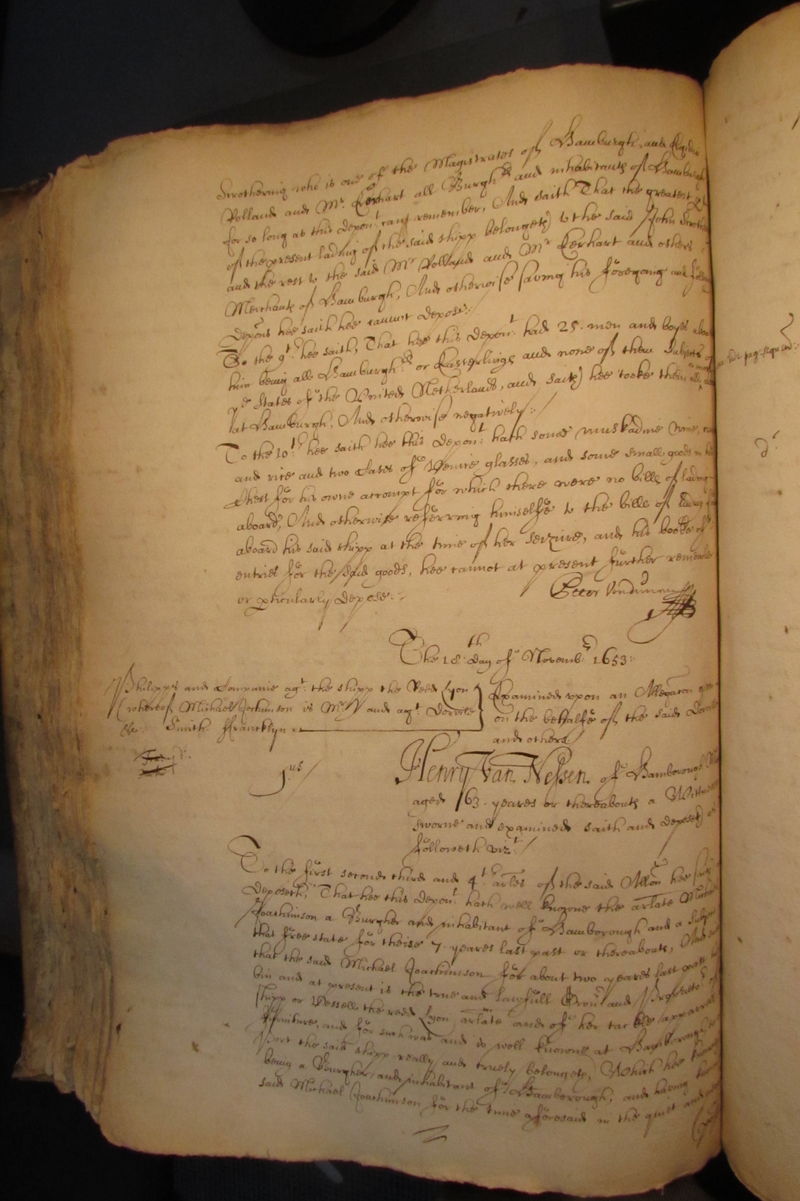 who is one of the Magistrates of Hamburgh, and
Rolland and Mr. Eerhart all Burghers and inhabitants of Hamburgh
for so long as this depont. can remember, And saith That the greatest
of the present lading of the said shipp belongeth to the said John
and the rest to the said Mr Rolland and Mr Eerhart and others
Merchants of Hamburgh, And otherwise saving his foregoing
deposns hee saith hee cannot depose:/
To the 9th. hee saith, That hee this depont. had 25. men and boyes
him being all Hamburghers or Easterlings and none of them Subjects of
ye States of the United Netherlands, and saith hee tooke them all
at Hamburgh, And otherwise negatively:/
To the 10th. hee saith hee this depont: hath some muskadine wine,
and rice and two Cases of Venice glasses, and some small goods in his
Chest for his owne accompt for which there were no bills of lading
aboard, And otherwise referring himselfe to the bills of lading
aboard his said shipp at the time of her seizure, and his booke of
entries for the said goods, hee cannot at present further remember
or pticularly depose:
Peter
The 18th. day of Novemb. 1653:
Philipps and Companie agt: the shipp the Redd Lyon
(whereof Michael Joachimson is Mr) and agt
&c Smith Francklyn
Examined upon an Allegaton
on the behalfe of the said
and others:
1us/
Henry Van Nessen. of Hamborough
aged 63. yeares or thereabouts a Wittnes
sworne and examined saith and deposeth
followeth vizt./
To the first second third and 4th. arles of the said Allon hee saith
deposeth, That hee this depont. hath well knowne the arlate Michael
Joachimson a Burgher and inhabitant of Hamborough and a Subject
that free state for theise 7. yeares last past or thereabouts, And
that the said Michael Joachimson for about two yeares last past
bin and at present is the true and lawfull Owner and Proprietor of
shipp or Vessell the redd Lyon arlate and of her tackle apparrell
furniture, and for such was and is well knowne at Hamborough
Port the said shipp really and truely belongeth, Which hee knoweth
being a Burgher and inhabitant of Hamborough, and having
said Michael Joachimson for the time aforesaid in the quiet and